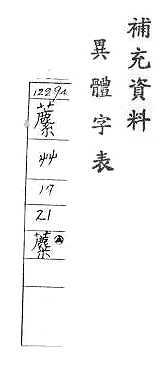 補充資料
異體字表
12294
艸
17
21